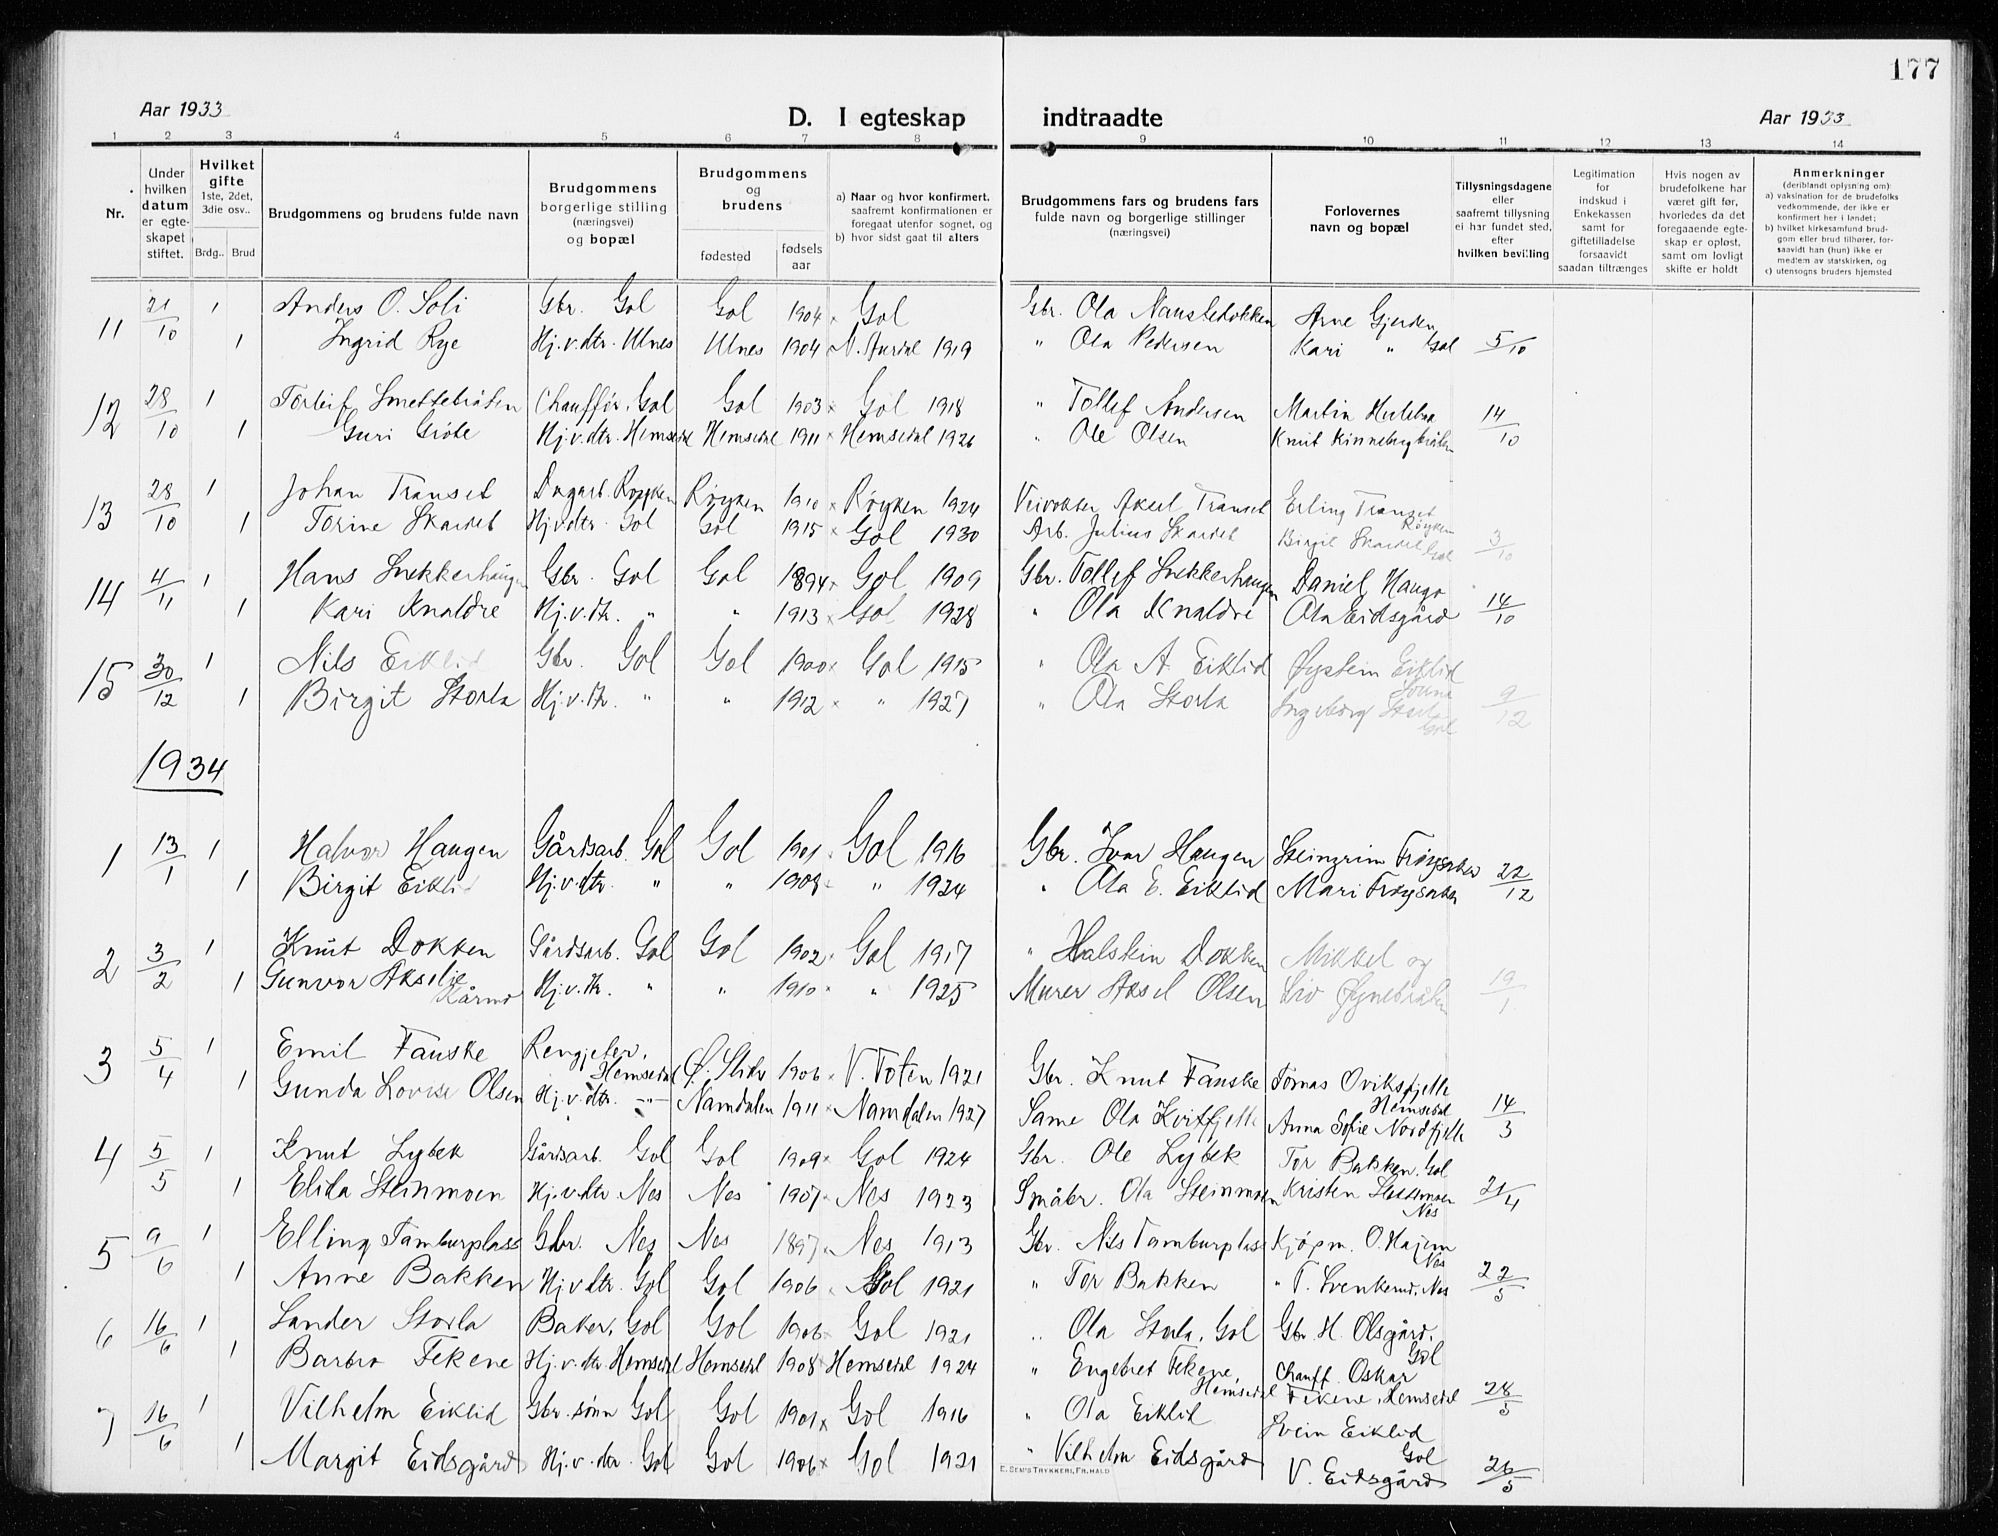 177
Aar 1933
D. I egteskap indtraadte
Aar 1933
1 2 3 4 5 6 7 8 9 10 11 12 13 14
Nr.
Under hvilken datum er egteskapet stiftet.
Hvilket gifte 1ste, 2det, 3die osv..
Brdg.. Brud
Brudgommens og brudens fulde navn
Brudgommens borgerlige stilling (næringsvei) og bopæl
Brudgommens og brudens
fødested
fødselsaar
a) Naar og hvor konfirmert, saafremt konfirmationen er foregaat utenfor sognet, og
b) hvor sidst gaat til alters
Brudgommens fars og brudens fars fulde navn og borgerlige stillinger (næringsvei)
Forlovernes navn og bopæl
Tillysningsdagene eller saafremt tillysning ei har fundet sted, efter hvilken bevilling
Legitimation for indskud i Enkekassen samt for giftetilladelse forsaavidt saadan tiltrænges
Hvis nogen av brudefolkene har været gift før, hvorledes da det foregaaende egteskap er opløst, samt om lovligt skifte er holdt
Anmerkninger (deriblandt oplysning om):
a) vaksination for de brudefolks vedkommende, der ikke er konfirmert her i landet;
b) hvilket kirkesamfund brudgom eller brud tilhører, forsaavidt han (hun) ikke er medlem av statskirken, og
c) utensogns bruders hjemsted
11 21/10 1 Anders O. Soli Gbr. Gol Gol 1904 Gol Gbr. Ola Naustedokken Arne Gjerden
1 Ingrid Rye Hj.v.dtr. Ulnes Ulnes 1904 N. Aurdal 1919 " Ola Pedersen Kari " Gol 5/10
12 28/10 1 Torleif Smettebråten Chauffør, Gol Gol 1903 Gol 1918 " Tollef Andersen Martin
1 Guri Grøte Hj.v.dtr. Hemsedal Hemsedal 1911 Hemsedal 1926 " Ole Olsen Knut Kinnebergbråten 14/10
13 28/10 1 Johan Transet Dagarb. Røyken Røyken 1910 Røyken 1924 Veivokter Aksel Transet Erling Transet Røyken
1 Torine Skardet Hj.v.dtr. Gol Gol 1915 Gol 1930 Arb. Julius Skardet Birgit Skardet Gol 3/10
14 4/11 1 Hans Snekkerhaugen Gbr. Gol Gol 1894 Gol 1909 Gbr. Tollef Snekkerhaugen Daniel Haugo
1 Kari Knaldre Hj.v.dtr. " " 1913 Gol 1928 " Ola Knaldre Ola Eidsgård 14/10
15 30/12 1 Nils Eiklid Gbr. Gol Gol 1900 Gol 1915 " Ola A. Eiklid Øystein Eiklid
1 Birgit Storla Hj.v.dtr. " " 1912 " 1927 " Ola Storla Ingeborg Gol 9/12
1934
1 13/1 1 Halvor Haugen Gårdsarb. Gol Gol 1901 Gol 1916 Gbr. Ivar Haugen Steingrim Frøysaker
1 Birgit Eiklid Hj.v.dtr. " " 1908 " 1924 " Ola E. Eiklid Mari Frøysaker 22/12
2 3/2 1 Knut Dokken Gårdsarb. Gol Gol 1902 Gol 1917 " Halstein Dokken Mikkel og
1 Gunvor Akselie Kårmo Hj.v.dtr. " " 1910 " 1925 Murer Aksel Olsen Liv Øynebråten 19/1
3 5/4 1 Emil Fauske Rengjeter, Hemsedal Ø. Slidre 1906 V. Toten 1921 Gbr. Knut Fauske Tomas Oviksfjelle Hemsedal
1 Gunda Lovise Olsen Hj.v.dtr. -"- Namdalen 1911 Namdalen 1927 Same Ola Kvitfjelle Anna Sofie Nordfjelle 14/3
4 5/5 1 Knut Lybek Gårdsarb. Gol Gol 1909 Gol 1924 Gbr. Ole Lybek Tor Bakken, Gol
1 Elida Steinmoen Hj.v.dtr. Nes Nes 1907 Nes 1923 Småbr. Ola Steinmoen Kristen Nes 21/4
5 9/6 1 Elling Tamburplass Gbr. Nes Nes 1897 Nes 1913 Gbr. Nils Tamburplass Kjøpm. O. Hajem Nes
1 Anne Bakken Hj.v.dtr. Gol Gol 1906 Gol 1921 " Tor Bakken " T. Svenkerud, Nes 22/5
6 16/6 1 Sander Storla Baker, Gol Gol 1906 Gol 1921 " Ola Storla, Gol Gbr. H. Olsgård, Gol
1 Barbro Fekene Hj.v.dtr. Hemsedal Hemsedal 1908 Hemsedal 1924 " Engebret Fekene, Hemsedal Chauff. Oskar Fekene, Hemsedal 28/5
7 16/6 1 Vilhelm Eiklid Gbr.sønn Gol Gol 1901 Gol 1916 " Ola Eiklid Svein Eiklid Gol
1 Margit Eidsgård Hj.v.dtr. Gol Gol 1906 Gol 1921 " Vilhelm Eidsgård V. Eidsgård 26/5
E. SEM'S TRYKKERI, FR.HALD